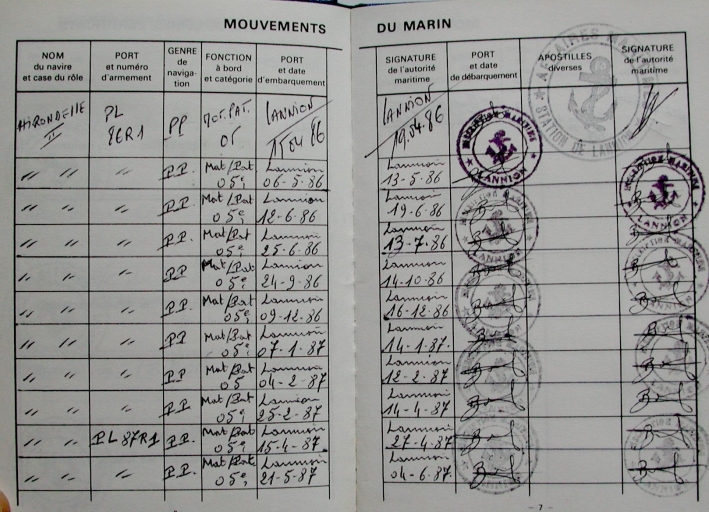 MOUVEMENTS DU MARIN
NOM du navire et case du rôle
PORT et numéro d'armement
GENRE de naviga- tion
FONCTION à bord et catégorie
PORT et date d'embarquement
SIGNATURE de l'autorité maritime
PORT et date de débarquement
APOSTILLES diverses
SIGNATURE de l'autorité maritime
HIRONDELLE II PL 86R1 PP Mot.PAT. 05 LANNION 15 04 86 LANNION 19.04.86
" " " P.P. Mat/Pat 05e Lannion 06-5-86 Lannion 13-5-86
" " " P.P. Mat/Pat 05e Lannion 12-6-86 Lannion 19-6-86
" " " P.P. Mat/Pat 05e Lannion 25-6-86 Lannion 13-7-86
" " " P.P Mat/Pat 05e Lannion 24-9-86 Lannion 14-10-86
" " " P.P. Mat/Pat 05e Lannion 09-12-86 Lannion 16-12-86
" " " P.P Mat/Pat 05e Lannion 07-1-87 Lannion 14-1-87.
" " " P.P Mat/Pat 05 Lannion 04-2-87 Lannion 12-2-87
" " " P.P. Mat/Pat 05e Lannion 25-2-87 Lannion 14-4-87
" " PL 87R1 P.P. Mat/Pat 05e Lannion 15-4-87 Lannion 27-4-87
" " " P.P. Mat/Pat 05e Lannion 21-5-87 Lannion 04-6-87.
AFFAIRES MARITIMES STATION DE LANNION
INSCRIPTION MARITIME LANNION
INSCRIPTION MARITIME LANNION
- 7 -